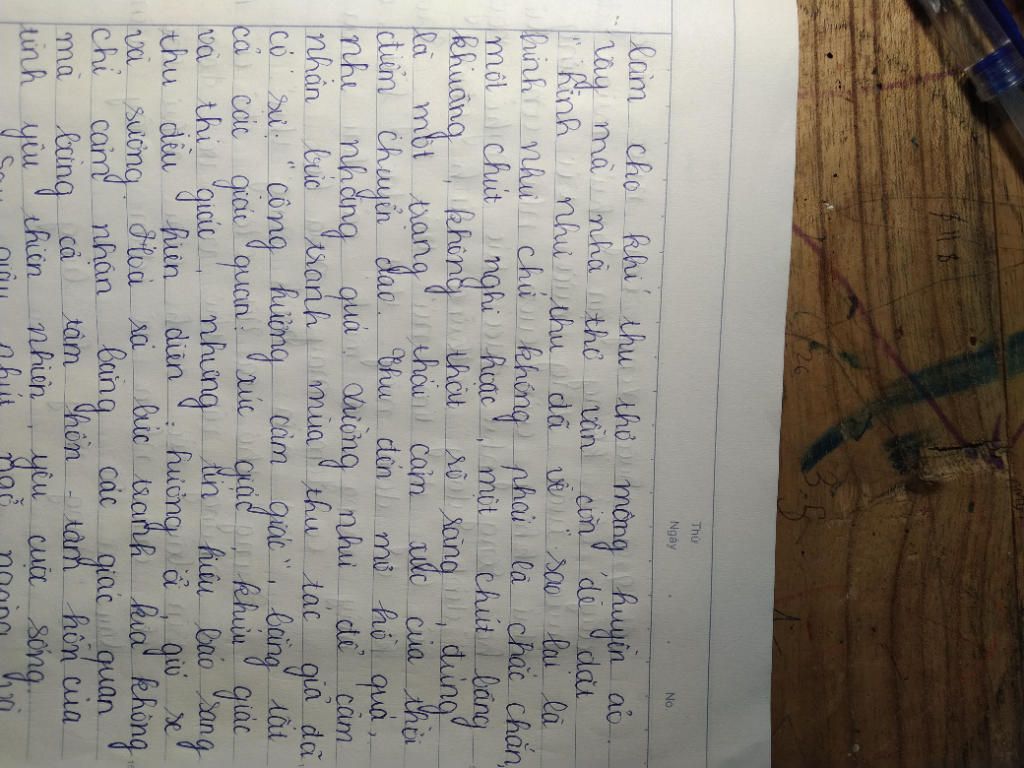 Thứ
Ngày
No.
làm cho khí thu thơ mộng, huyền ảo.
Vậy mà nhà thơ vẫn còn do dự
"hình như thu đã về" sao lại là
hình như chứ không phải là chắc chắn,
một chút nghi hoặc, một chút bâng
khuâng, không thật rõ ràng, đúng
là một trạng thái cảm xúc của thời
điểm chuyển giao. Thu đến mơ hồ quá,
nhẹ nhàng quá. Dường như để cảm
nhận bức tranh mùa thu tác giả đã
có sự "cộng hưởng cảm giác", bằng tất
cả các giác quan: xúc giác, khứu giác
và thị giác, những tín hiệu báo sang
thu đều hiện diện: hương ổi, gió se
và sương. Hoá ra bức tranh kia không
chỉ cảm nhận bằng các giác quan
mà bằng cả tâm hồn - tâm hồn của
tình yêu thiên nhiên, yêu cuộc sống.
Sau giây phút ngỡ ngàng